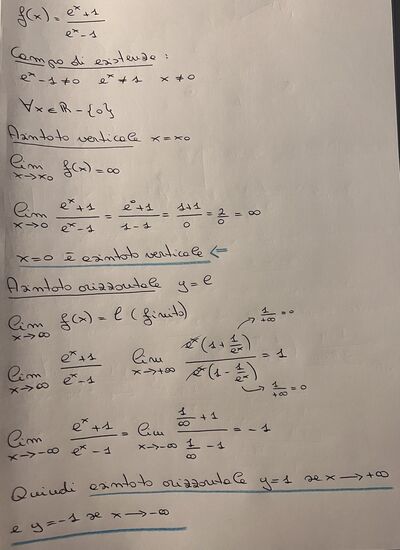 f(x) = (e^x + 1)/(e^x - 1)
Campo di esistenza :
e^x - 1 ≠ 0   e^x ≠ 1   x ≠ 0
∀x ∈ ℝ - {0}
Asintoto verticale x = x₀
lim_{x→x₀} f(x) = ∞
lim_{x→0} (e^x + 1)/(e^x - 1) = (e^0 + 1)/(1 - 1) = (1 + 1)/0 = 2/0 = ∞
x = 0 è asintoto verticale ⇐
Asintoto orizzontale y = l
lim_{x→∞} f(x) = l (finito)
1/+∞ = 0
lim_{x→∞} (e^x + 1)/(e^x - 1)   lim_{x→+∞} e^x(1 + 1/e^x)/e^x(1 - 1/e^x) = 1
1/+∞ = 0
lim_{x→-∞} (e^x + 1)/(e^x - 1) = lim_{x→-∞} (1/∞ + 1)/(1/∞ - 1) = -1
Quindi asintoto orizzontale y = 1 se x → +∞
e y = -1 se x → -∞